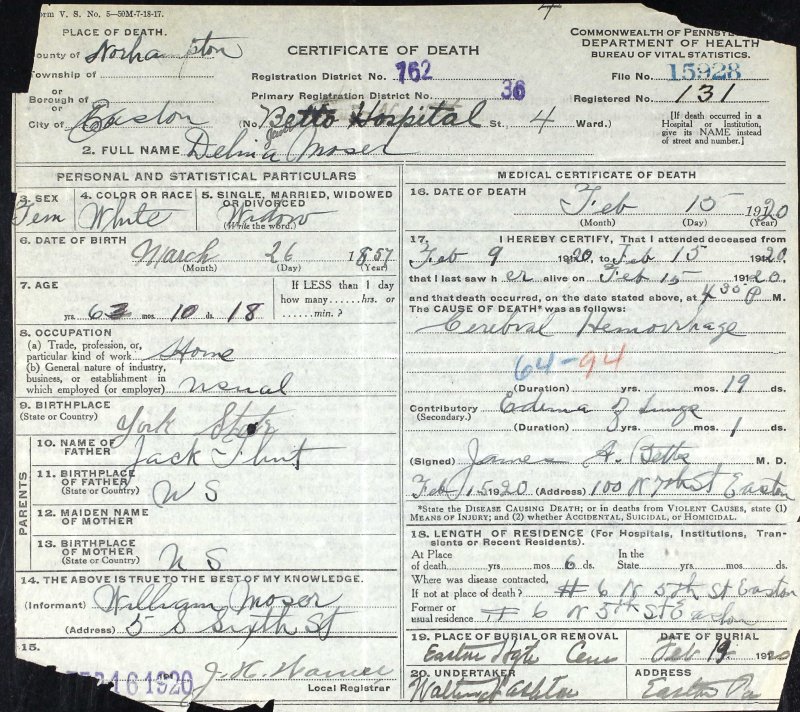 Form V. S. No. 5—50M-7-18-17.
PLACE OF DEATH.
County of Northampton
Township of
or
Borough of
or
City of Easton
CERTIFICATE OF DEATH
Registration District No. 762
Primary Registration District No. 36
(No. Betts Hospital St. 4 Ward.)
COMMONWEALTH OF PENNSYL
DEPARTMENT OF HEALTH
BUREAU OF VITAL STATISTICS.
File No. 15928
Registered No. 131
[If death occurred in a
Hospital or Institution,
give its NAME instead
of street and number.]
2. FULL NAME Delina Moser
PERSONAL AND STATISTICAL PARTICULARS
3. SEX
Fem
4. COLOR OR RACE
White
5. SINGLE, MARRIED, WIDOWED
OR DIVORCED
(Write the word.)
Widow
6. DATE OF BIRTH
March 26 1857
(Month) (Day) (Year)
7. AGE
62 yrs. 10 mos. 18 ds.
If LESS than 1 day
how many......hrs. or
......min.?
8. OCCUPATION
(a) Trade, profession, or,
particular kind of work Home
(b) General nature of industry,
business, or establishment in
which employed (or employer) usual
9. BIRTHPLACE
(State or Country) York State
PARENTS
10. NAME OF
FATHER Jack Flint
11. BIRTHPLACE
OF FATHER
(State or Country) U S
12. MAIDEN NAME
OF MOTHER
13. BIRTHPLACE
OF MOTHER
(State or Country) U S
14. THE ABOVE IS TRUE TO THE BEST OF MY KNOWLEDGE.
(Informant) William Moser
(Address) 5 S Sixth St
15.
16 1920 J. H.
Local Registrar
MEDICAL CERTIFICATE OF DEATH
16. DATE OF DEATH
Feb 15 1920
(Month) (Day) (Year)
17. I HEREBY CERTIFY, That I attended deceased from
Feb 9 1920, to Feb 15 1920,
that I last saw her alive on Feb 15 1920,
and that death occurred, on the date stated above, at 4 30 P M.
The CAUSE OF DEATH* was as follows:
Cerebral Hemorrhage
64-94
(Duration) yrs. mos. 19 ds.
Contributory Edema of Lungs
(Secondary.)
(Duration) yrs. mos. 1 ds.
(Signed) James A. Betts M. D.
Feb 15 1920 (Address) 100 N 7th St Easton
*State the DISEASE CAUSING DEATH; or in deaths from VIOLENT CAUSES, state (1)
MEANS OF INJURY; and (2) whether ACCIDENTAL, SUICIDAL, or HOMICIDAL.
18. LENGTH OF RESIDENCE (For Hospitals, Institutions, Tran-
sients or Recent Residents).
At Place In the
of death yrs. mos. 6 ds. State yrs. mos. ds.
Where was disease contracted,
If not at place of death? # 6 N 5th St Easton
Former or
usual residence # 6 N 5th St Easton
19. PLACE OF BURIAL OR REMOVAL
Easton Hgts Cem
DATE OF BURIAL
Feb 19 1920
20. UNDERTAKER
ADDRESS
Easton Pa